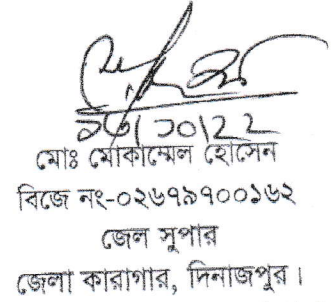 মোঃ মোকাম্মেল হোসেন
বিজে নং-০২৬৭৯৭০০১৬২
জেল সুপার
জেলা কারাগার, দিনাজপুর।